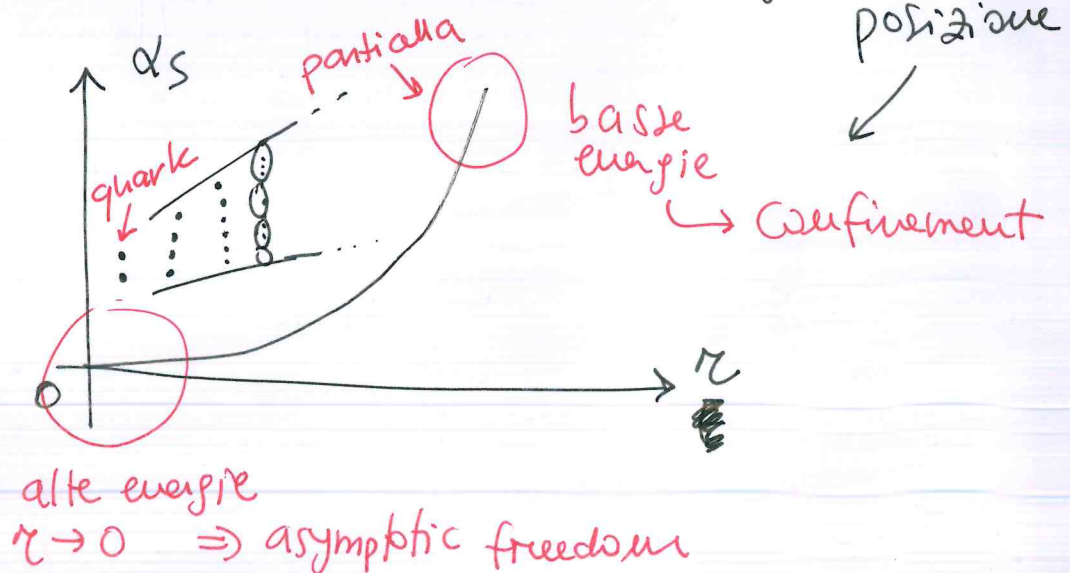 posizione
αs
partialla
quark
basse
energie
↳ Confinement
r
0
alte energie
r → 0 ⇒ asymptotic freedom